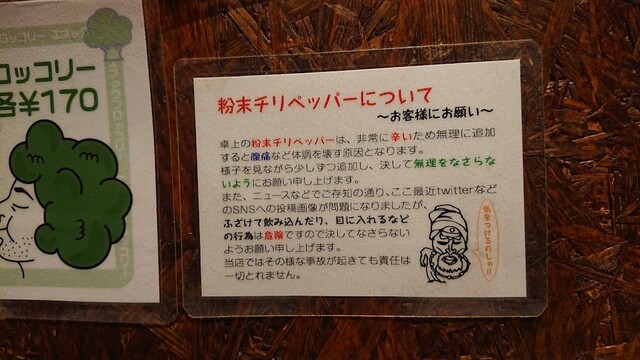 ロッコリー
各¥170
粉末チリペッパーについて
～お客様にお願い～
卓上の粉末チリペッパーは、非常に辛いため無理に追加
すると腹痛など体調を壊す原因となります。
様子を見ながら少しずつ追加し、決して無理をなさらな
いようにお願い申し上げます。
また、ニュースなどでご存知の通り、ここ最近twitterなど
のSNSへの投稿画像が問題になりましたが、
ふざけて飲み込んだり、目に入れるなど
の行為は危険ですので決してなさらない
ようお願い申し上げます。
当店ではその様な事故が起きても責任は
一切とれません。
気をつけるのじゃ!!